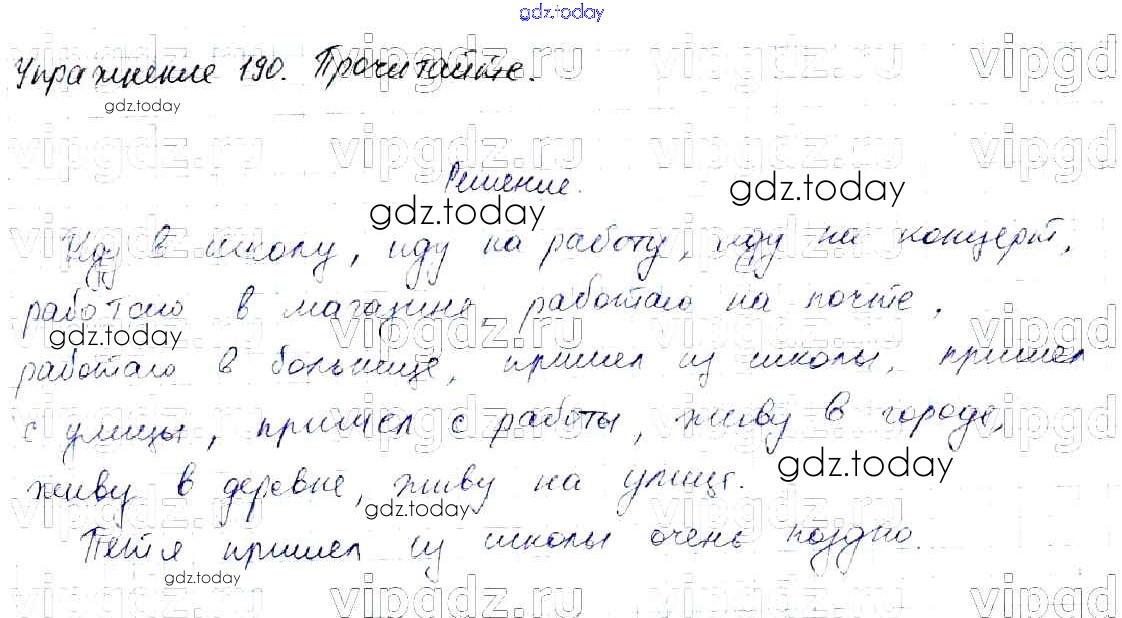 gdz.today
Упражнение 190. Прочитайте.
gdz.today
vipgdz.ru vipgdz.ru vipgd
Решение.
gdz.today gdz.today
Иду в школу, иду на работу, иду на концерт,
работаю в магазине, работаю на почте,
gdz.today
работаю в больнице, пришел из школы, пришел
с улицы, пришел с работы, живу в городе,
gdz.today
живу в деревне, живу на улице.
gdz.today
Петя пришел из школы очень поздно.
gdz.today
vipgdz.ru vipgd